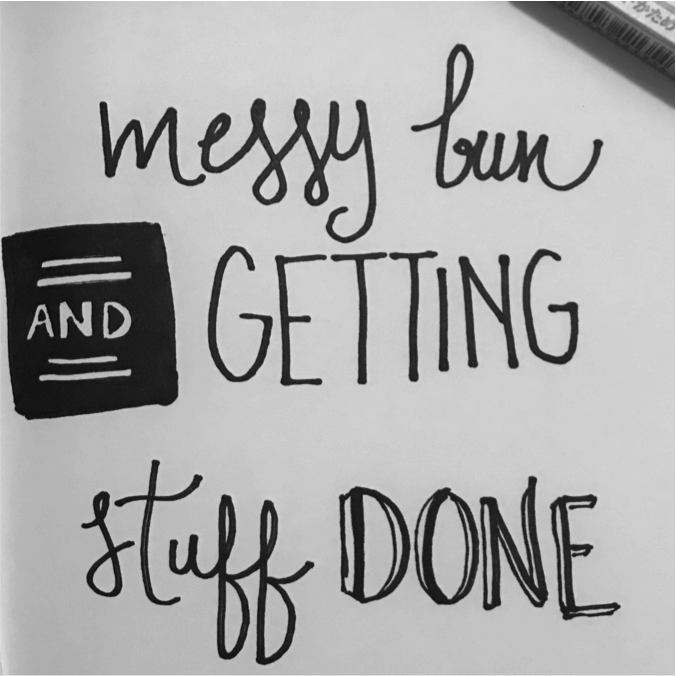 messy bun
AND GETTING
stuff DONE